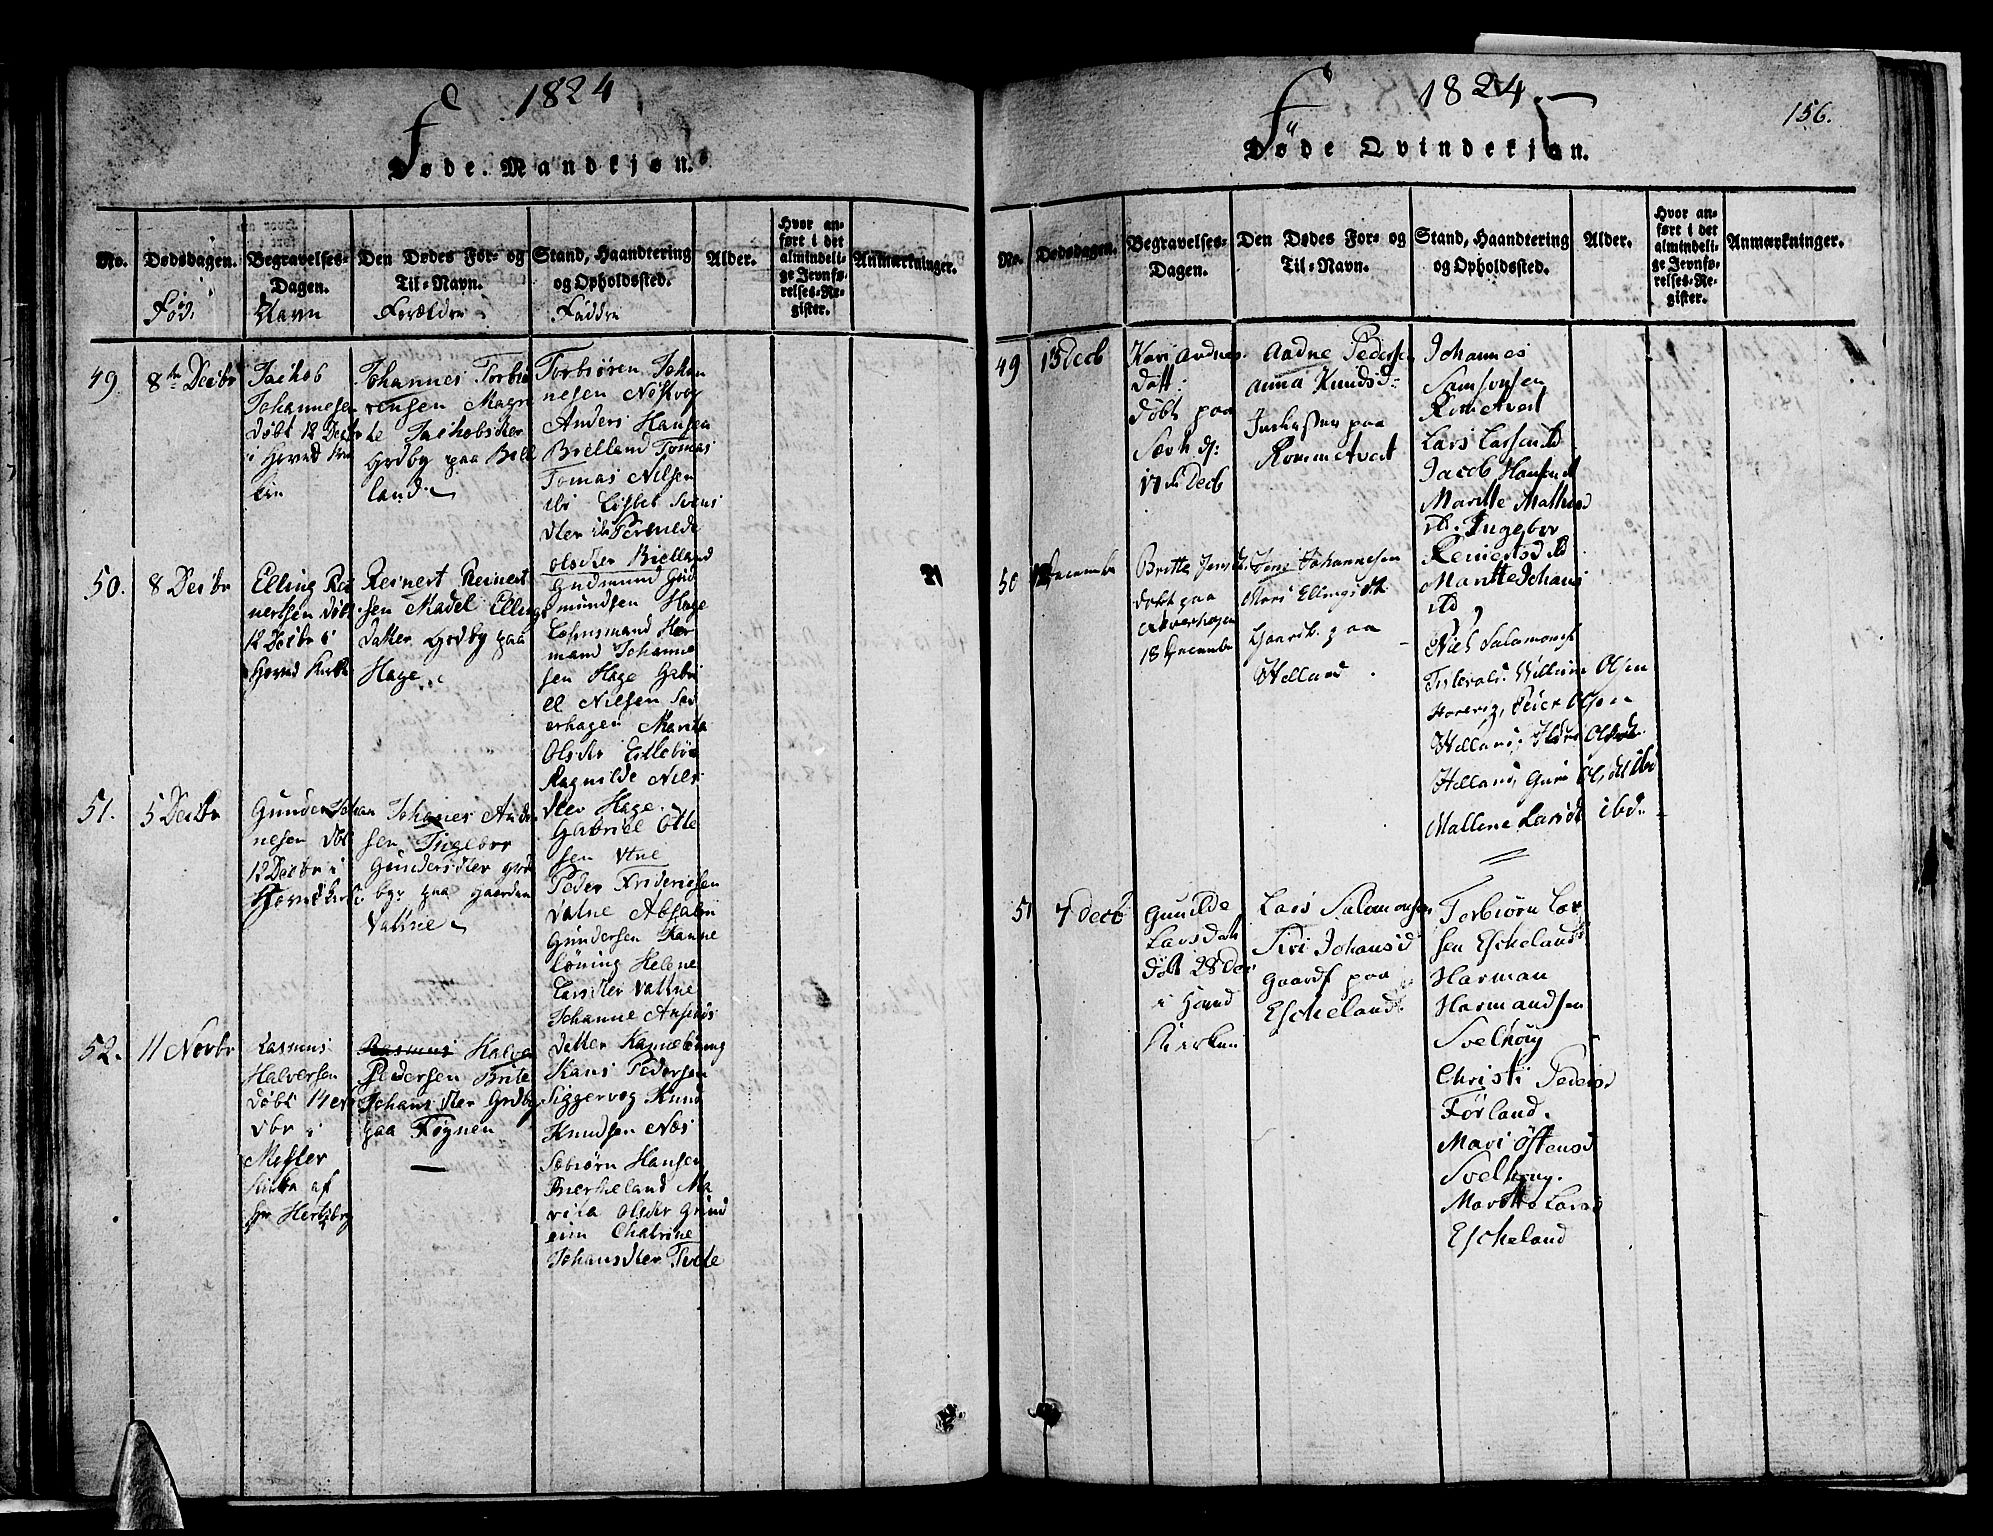 1824
Døde Mandkjøn.
No.
Dødsdagen.
Begravelses-
Dagen.
Den Dødes For- og
Til-Navn.
Stand, Haandtering
og Opholdssted.
Alder.
Hvor an-
ført i det
almindeli-
ge Jevnfø-
relses-Re-
gister.
Anmærkninger.
Fød
Navn
Forældre
Faddre
49
8de Decbr
Jachob
Johannesen
døbt 12 Decbr
i
Johannes Torbiø
rensen Magre
te Jachobsdter
Grdby paa Biel
land.
Torbiøren Johan
nesen
Anders Hansen
Bielland Tomas
Tomas Nilsen
ibi Lisbet Svens
dter ibi Pernilde
olsdter Bielland
50.
8 Decbr
Elling Rei
nertsen døbt
12 Decbr i
Hovd Kirke
Reinert Reinert
sen Madel Ellings
datter Grdby paa
Hage.
Gudmund Gud
mundsen Hage
Lehnsmand Her
mand Johanne
sen Hage Gabri
el Nilsen Sæv
erhagen Marita
Olsdter Litlebøe
Ragnilde Niels
dter Hage.
51.
5 Decbr
Gunder Johan
nesen døbt
12 Decbr i
Hovd Kirke
Johanes Ande
sen Ingebor
Gundersdter grd
byr paa gaarden
Vatne
Gabriel Otte
sen Utne
Peder Fridericsen
Vatne Absalon
Gundersen
Helene
Larsdter Vatne
Johanne
datter
52.
11 Novbr
Rasmus
Halversen
døbt 14 no
vbr i
Mester
Kirke af
Hr Hertzberg
Rasmus Halver
Pedersen Brite
Johansdter Grdby
paa Tognen
Hans Pedersen
Siggervog Knud
Knudsen Næs
Sebiørn Hansen
Bierkeland Ma
rita olsdter Grind
eim Chatrine
Johansdter Tvete
1824.
156.
Døde Qvindekjøn.
No.
Dødsdagen.
Begravelses-
Dagen.
Den Dødes For- og
Til-Navn.
Stand, Haandtering
og Opholdssted.
Alder.
Hvor an-
ført i det
almindeli-
ge Jevnfø-
relses-Re-
gister.
Anmærkninger.
49
15 Decb
Kari Aadnes
datt:
døbt paa
17 de Decb
Aadne Pedersen
Anna Knudsd:
Inderster paa
Romme tvet
Johannes
Samsonsen
Romme tvet
Lars Larsen ibd
Jacob Hansen ibd
Maritte Mathisd
ib. Ingebor
Reinertsd ibd
Maritte Johans
ibd
50
December
Britte Jensd
døbt paa
18 December
Jens Johannesen
Mari Ellingsdtt
Gaardb. paa
Helland.
Niels Salomons
Willum Olsen
Peder Olsen
Helland,
Helland, Guri Olsdtt ibd
Mallene Larsdt ibd.
51
7 Decb
Gunilde
Larsdatt
døbt 28 Dec
i Hovd
Kirken
Lars Salomonsen
Siri Johansd
Gaardf paa
Escheland.
Torbiørn Lar
sen Escheland
Harman
Harmandsen
Svelhoug
Christi Pedersd
Førland.
Mari Østensd
Svelhoug.
Maritte Larsd
Escheland